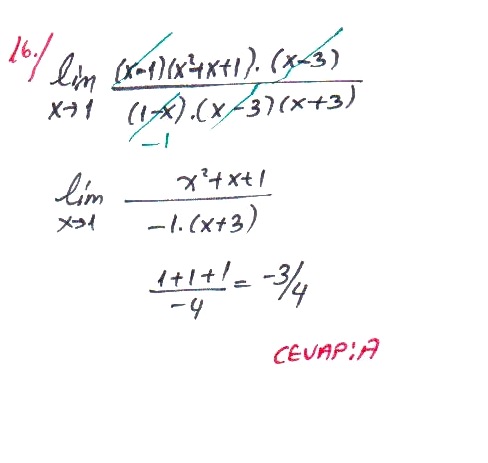 16./ lim x→1 (x-1)(x²+x+1).(x-3) / (1-x).(x-3)(x+3)
-1
lim x→1 x²+x+1 / -1.(x+3)
1+1+1 / -4 = -3/4
CEVAP:A